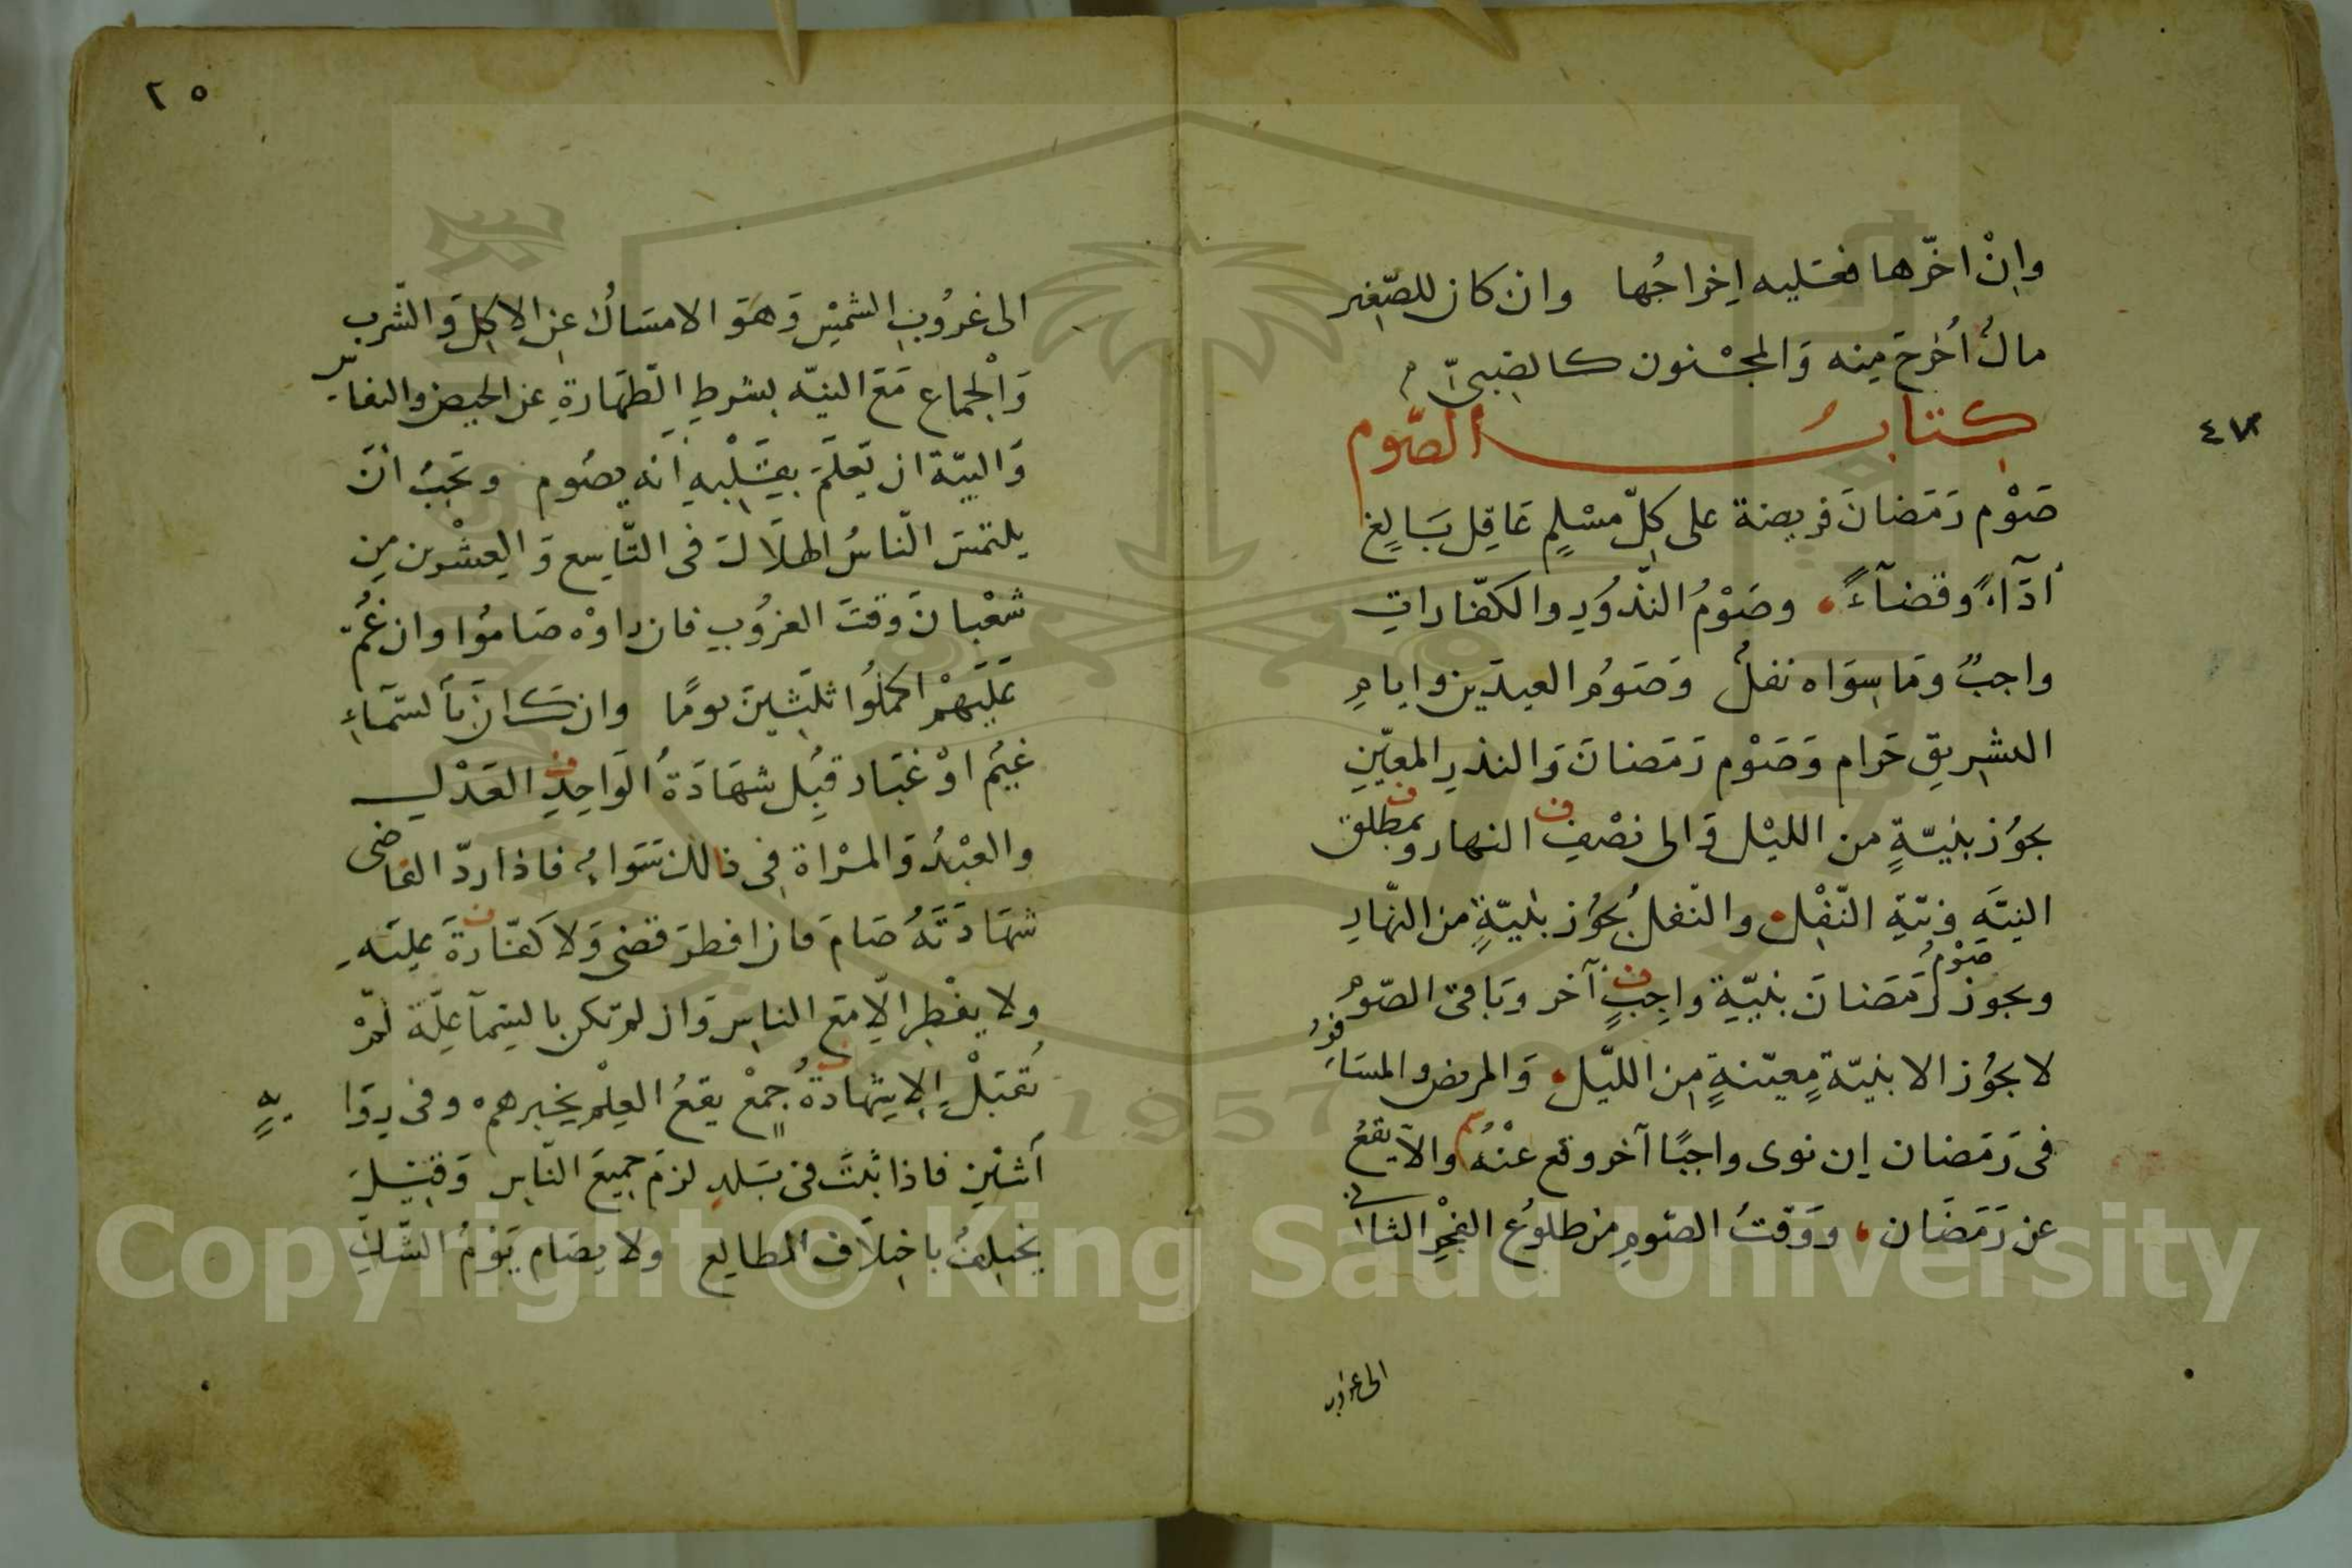 وإنْ اخّرها فعليه إخراجُها وان كان للصّغير
مالٌ اُخرجَ منه وَالمجْنون كالصّبىّ
كتابُ الصّوم
٤٧
صَوْم رَمَضانَ فريضة على كلّ مسْلمٍ عَاقلٍ بَالغٍ
أدَآءً وقضآءً وصَوْمُ النّذُورِ والكفّاراتِ
واجبٌ ومَا سِوَاه نفلٌ وَصَوْمُ العيدَين وايامِ
التشريقِ حَرام وَصَوْم رَمَضانَ وَالنذرِ المعيّنِ
يجوُز بنيّةٍ من الليْل وَالى نصْفِ النهار وبمطلق
النيّةِ ونيّةِ النّفْل والنّفل يجوُز بنيّةٍ من النّهارِ
ويجوز صَوْمُ رَمَضانَ بنيّةِ واجبٍ آخر وبَاقى الصّوم
لا يجوُز الا بنيّة معيّنةٍ من الليّل وَالمريض والمسَافرُ
فى رَمَضان إن نوى واجبًا آخر وقع عنْهُ والاّ يقعُ
عن رَمَضَان ووَقتُ الصّومِ من طلوُع الفجْرِ الثانى
الى غروب
٢٥
الى غروُبِ الشمْسِ وَهوَ الامسَاكُ عن الاكلِ وَالشّرب
وَالْجماع مَعَ النيّه بشرطِ الطّهَارةِ عن الحيض والنفاس
وَالنيّة ان يَعلَمَ بقَلْبهِ أنه يصُوم ويَجبُ أنْ
يلتمسَ النّاسُ الهلاَلَ فى التّاسِع وَالعشْرين من
شعْبانَ وقتَ الغرُوبِ فان راوْه صَامُوا وان غُمّ
عَلَيْهِمْ اكملُوا ثلثينَ يومًا وان كانَ بالسّمَاءِ
غيْم اوْ غبَار قبِل شهَادَةُ الوَاحِدِ العَدْلِ
والعبْدُ وَالمرْاة فى ذالك سَوَاء فاذا ردّ القاضى
شهَادَتَهُ صَامَ فان افطرَ قضى وَلا كفّارةَ عليَه
ولا يفْطر الّا مَع الناس وَان لم تكن بالسّمآ علّة لمْ
تُقبَلْ الا شهادَةُ جمْعٍ يقعُ العِلْم بخبرهم وفى روَايةٍ
اَثنَين فاذا ثبتَ فى بَلدٍ لزمَ جميعَ النّاس وَقيلَ
يختلفُ باختلاَف المطالع ولا يصَام يَوْمُ الشّكِّ
Copyright © King Saud University
1957